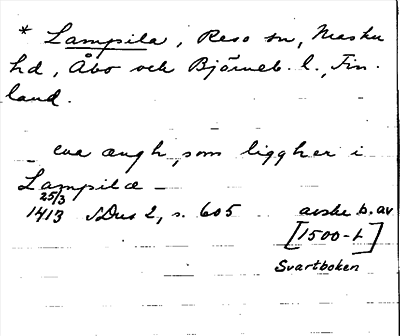 * Lampila, Reso sn, Masku
hd, Åbo och Björneb. l., Fin-
land.
_ eua ængh, som liggher i
Lampilæ _
25/3
1413 SDns 2, s. 605 avskr. b. av
[1500-t]
Svartboken